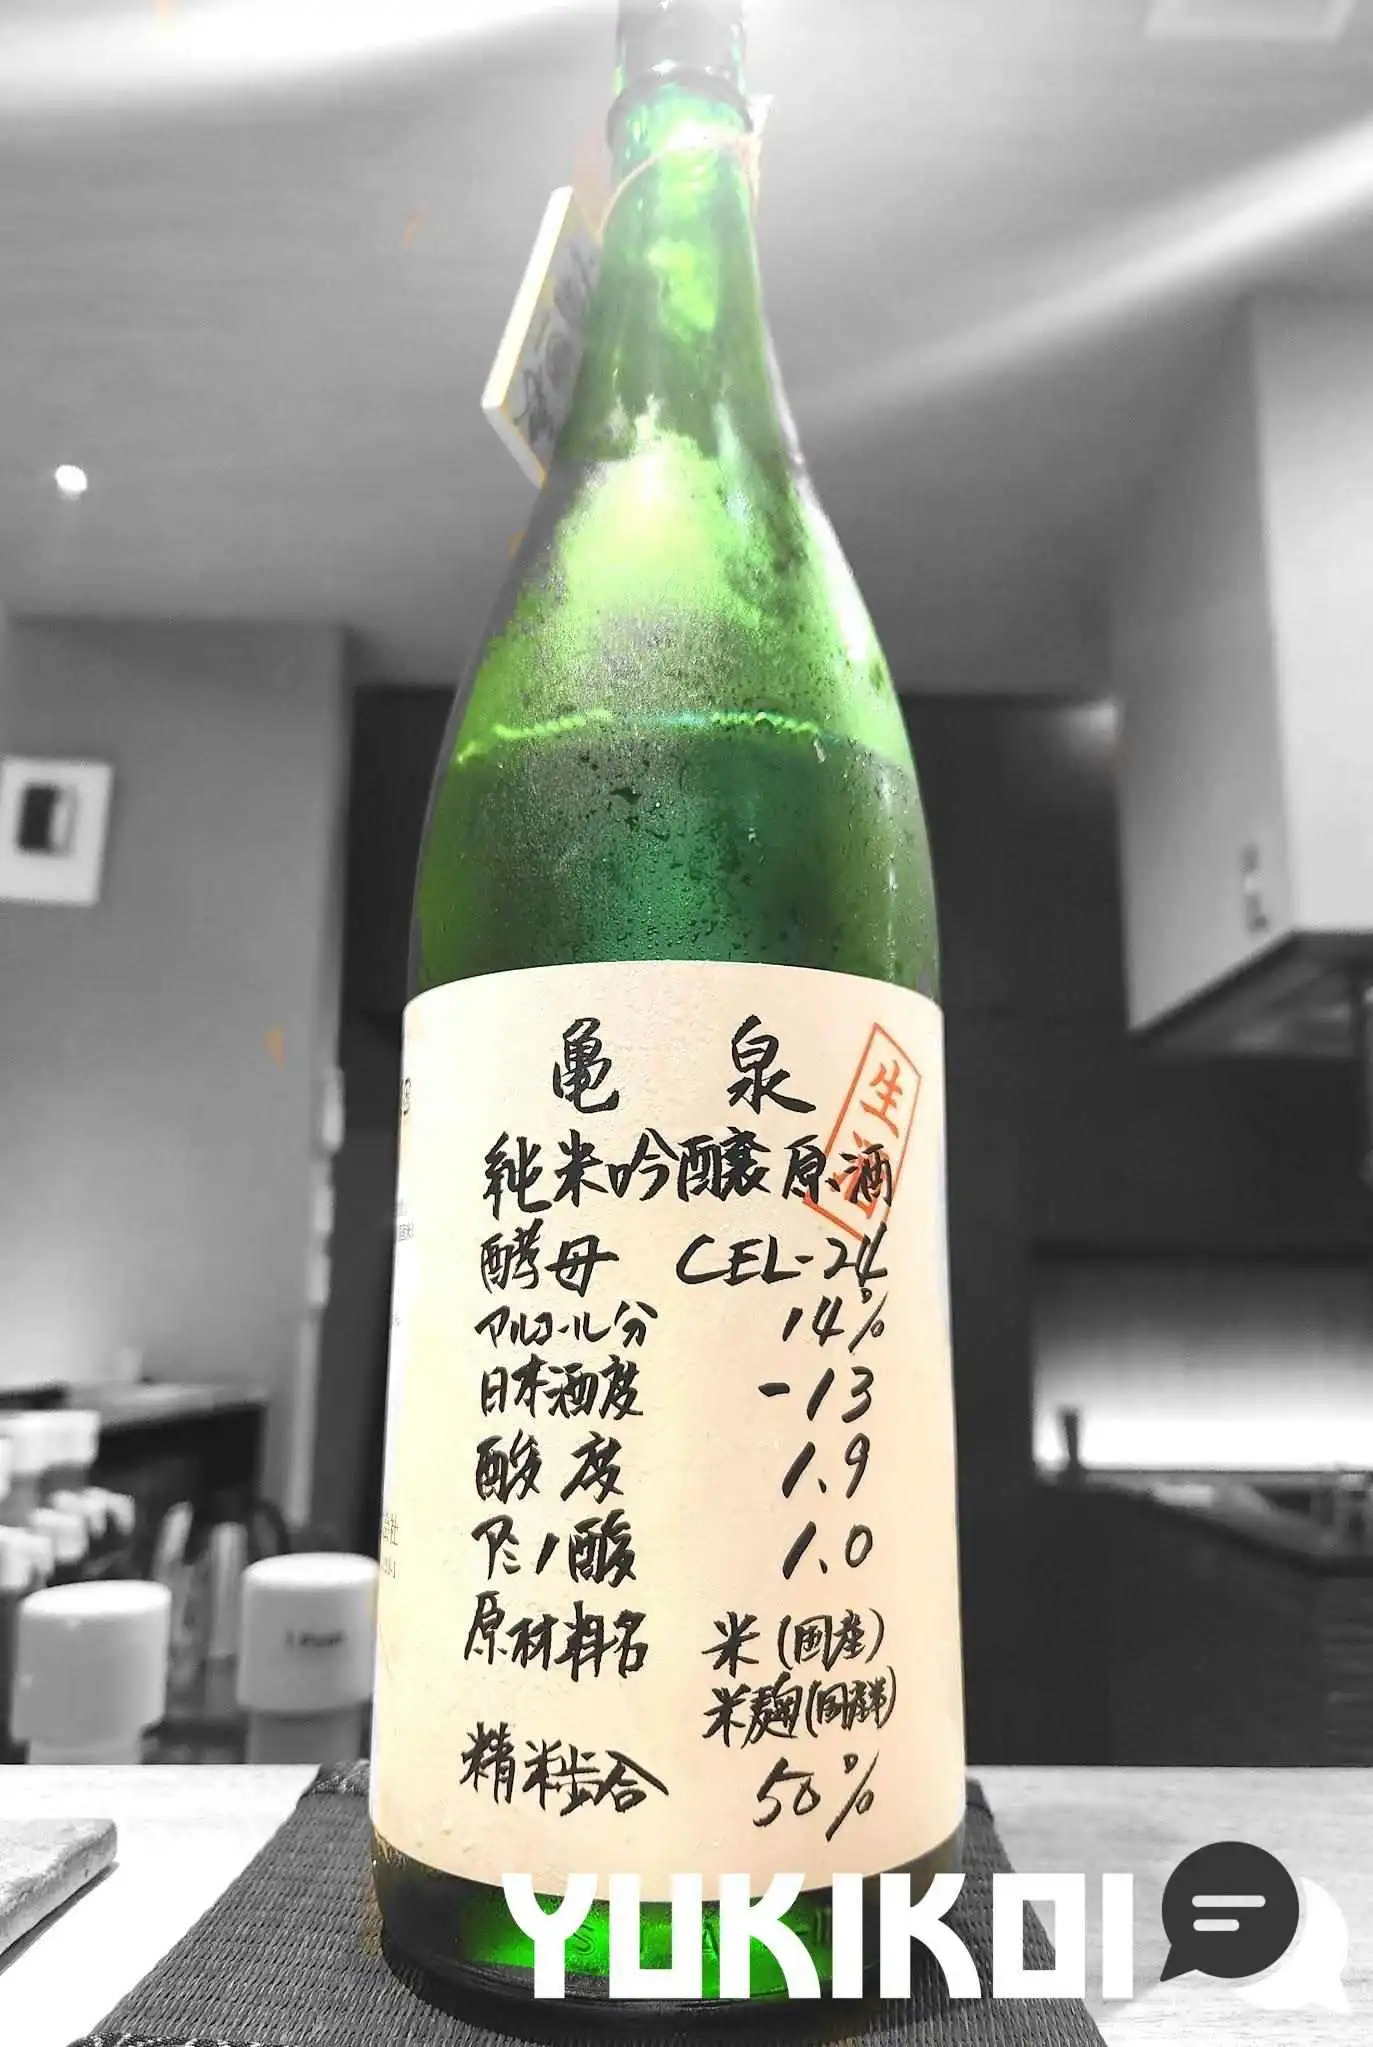 亀泉
生酒
純米吟醸原酒
酵母 CEL-24
アルコール分 14%
日本酒度 -13
酸度 1.9
アミノ酸 1.0
原材料名 米(国産)
米麹(国産米)
精米歩合 50%
YUKIKOI